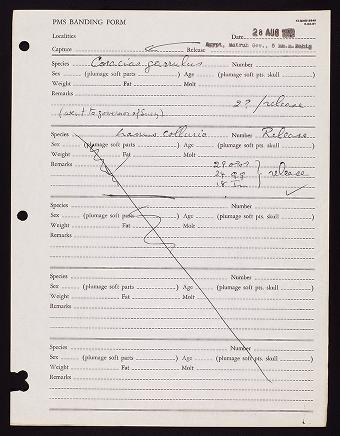 PMS BANDING FORM
Localities
Date 28 AUG
Capture Release Egypt, Matruh Gov.,
Species Coracias garrulus Number
Sex (plumage soft parts ) Age (plumage soft pts. skull )
Weight Fat Molt
Remarks
2? / release
(sent to governor of Suez)
Species Lanius collurio Number Release
Sex (plumage soft parts ) Age (plumage soft pts. skull )
Weight Fat Molt
Remarks
release
Species Number
Sex (plumage soft parts ) Age (plumage soft pts. skull )
Weight Fat Molt
Remarks
Species Number
Sex (plumage soft parts ) Age (plumage soft pts. skull )
Weight Fat Molt
Remarks
Species Number
Sex (plumage soft parts ) Age (plumage soft pts. skull )
Weight Fat Molt
Remarks